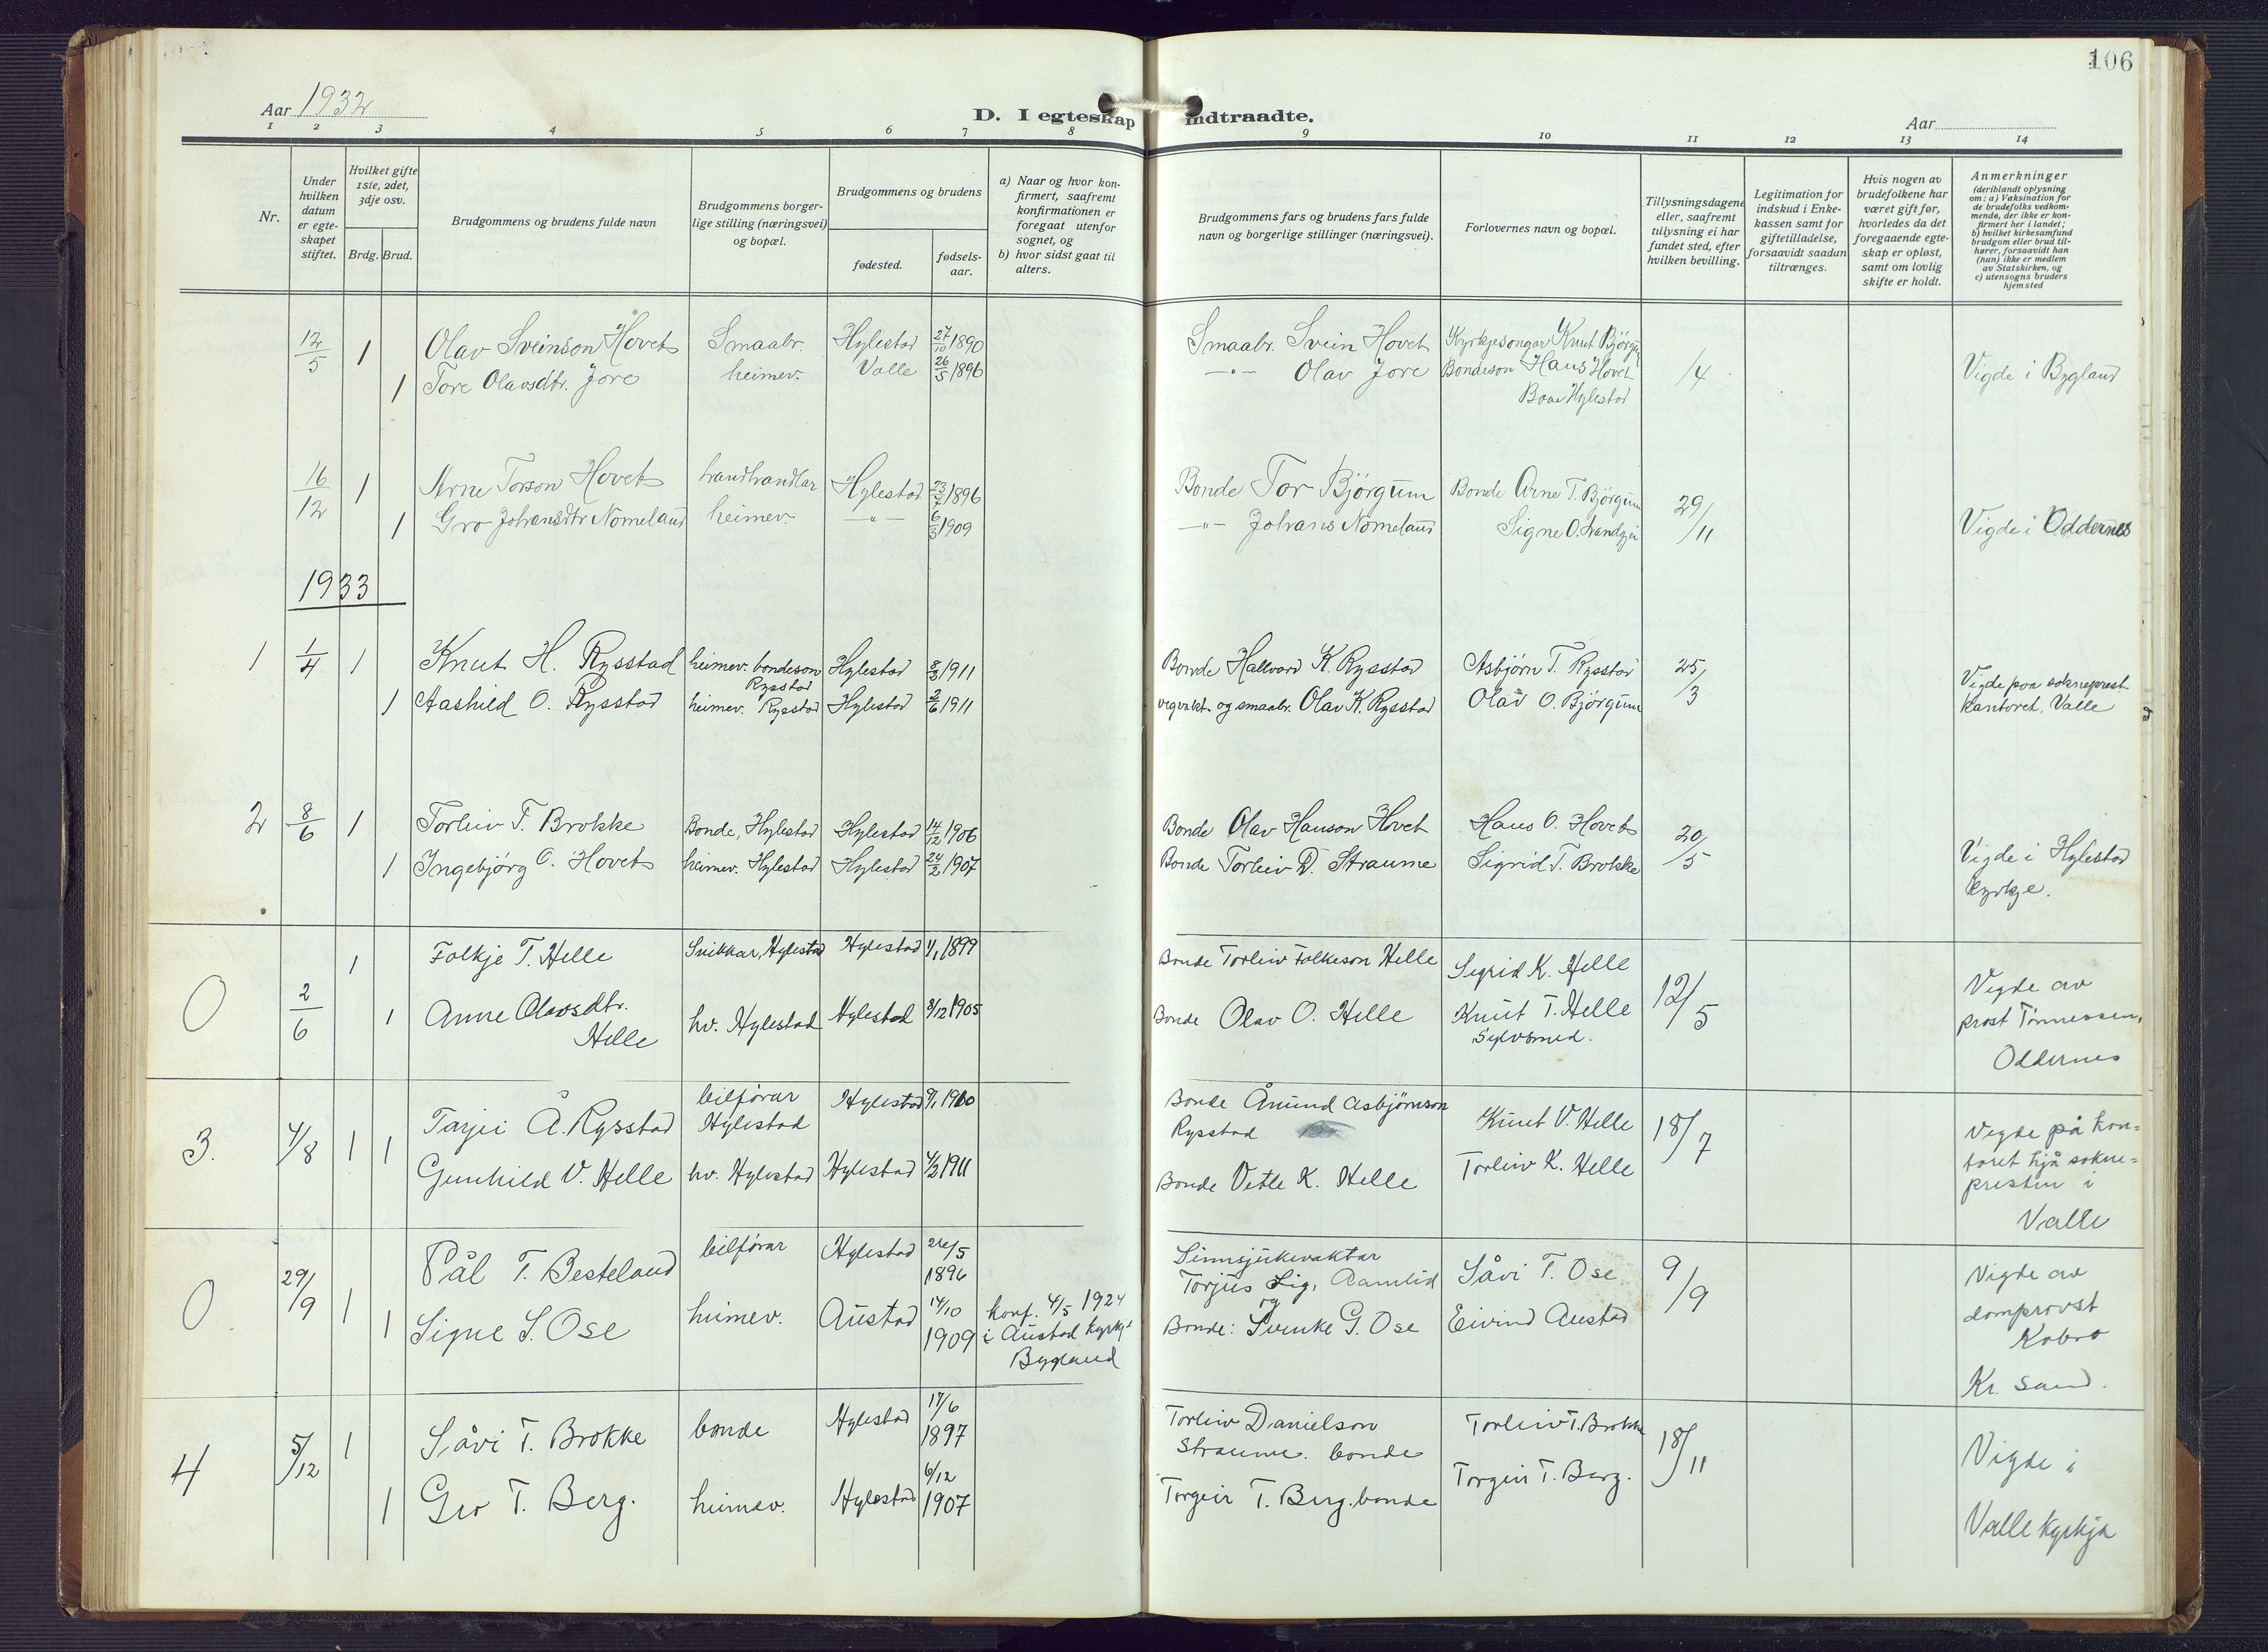 106
Aar 1932
D. I egteskap indtraadte.
Aar
1 2 3 4 5 6 7 8 9 10 11 12 13 14
Nr.
Under hvilken datum er egteskapet stiftet.
Hvilket gifte 1ste, 2det, 3dje osv.
Brdg. Brud.
Brudgommens og brudens fulde navn
Brudgommens borgerlige stilling (næringsvei) og bopæl.
Brudgommens og brudens
fødested.
fødselsaar.
a) Naar og hvor konfirmert, saafremt konfirmationen er foregaat utenfor sognet, og
b) hvor sidst gaat til alters.
Brudgommens fars og brudens fars fulde navn og borgerlige stillinger (næringsvei).
Forlovernes navn og bopæl.
Tillysningsdagene eller, saafremt tillysning ei har fundet sted, efter hvilken bevilling.
Legitimation for indskud i Enkekassen samt for giftetilladelse, forsaavidt saadan tiltrænges.
Hvis nogen av brudefolkene har været gift før, hvorledes da det foregaaende egteskap er opløst, samt om lovlig skifte er holdt.
Anmerkninger
(deriblandt oplysning om: a) Vaksination for de brudefolks vedkommende, der ikke er konfirmert her i landet;
b) hvilket kirkesamfund brudgom eller brud tilhører, forsaavidt han (hun) ikke er medlem av Statskirken, og
c) utensogns bruders hjemsted
12/5 1 Olav Sveinson Hovet Smaabr. Hylestad 27/10 1890 Smaabr. Svein Hovet Kyrkjesongar Knut Björgum
1 Tore Olavsdtr. Jore heimev. Valle 26/5 1896 -"- Olav Jore Bondeson Hans Hovet /4 Vigde i Bygland
Hylestad
16/12 1 Arne Torson Hovet handhandlar Hylestad 23/7 1896 Bonde Tor Björgum Bonde Arne T. Björgum 29/11
1 Gro Johansdtr Nomeland heimev. -"- 6/3 1909 -"- Johans Nomeland Signe O. Vigde i Oddernes
1933
1 1/4 1 Knut H. Rysstad heimev. bondeson Rysstad Hylestad 8/3 1911 Bonde Hallvard K. Rysstad Asbjørn T. Rysstad 25/3
1 Aashild O. Rysstad heimev. Rysstad Hylestad 2/6 1911 vegvakt. og smaabr. Olav K. Rysstad Olav O. Björgum Vigde paa sokneprest kantoret. Valle
2 8/6 1 Torleiv T. Brokke Bonde, Hylestad Hylestad 14/12 1906 Bonde Olav Hanson Hovet Hans O. Hovet 20/5
1 Ingebjørg O. Hovet heimev. Hylestad Hylestad 24/2 1907 Bonde Torleiv D. Straume Sigrid T. Brokke Vigde i Hylestad kyrkje.
0 2/6 1 Folkje T. Helle Snikkar, Hylestad Hylestad 1/1 1899 Bonde Torleiv Folkeson Helle Sigrid K. Helle 12/5
1 Anne Olavsdtr. Helle hv. Hylestad Hylestad 8/12 1905 Bonde Olav O. Helle Knut T. Helle Sylvsmed. Vigde av prost Tønnessen, Oddernes
3. 4/8 1 1 Tarjei Å. Rysstad bilförar Hylestad Hylestad 9/1 1900 Bonde Åmund Asbjørnson Rysstad Knut V. Helle 18/7
Gunhild V. Helle hv. Hylestad Hylestad 4/2 1911 Bonde Vetle K. Helle Torleiv K. Helle Vigde på kon= toret hjå sokne= presten i Valle
0 29/9 1 Pål T. Besteland bilförar Hylestad 26/5 1896 Sinnsjukevaktar Torjus Sig. Aamlid og Såvi T. Ose 9/9
1 Signe S. Ose heimev. Austad 14/10 1909 konf. 4/5 1924 i Austad kyrkje Bygland Bonde: Svenke G. Ose Eivind Austad Vigde av domprovst Kobro Kr. sand.
4 5/12 1 Såvi T. Brokke bonde Hylestad 17/6 1897 Torleiv Danielson Straume. bonde Torleiv T. Brokke 18/11
1 Gro T. Berg. heimev. Hylestad 6/12 1907 Torgeir T. Berg. bonde Torgeir T. Berg. Vigde i Valle kyrkja